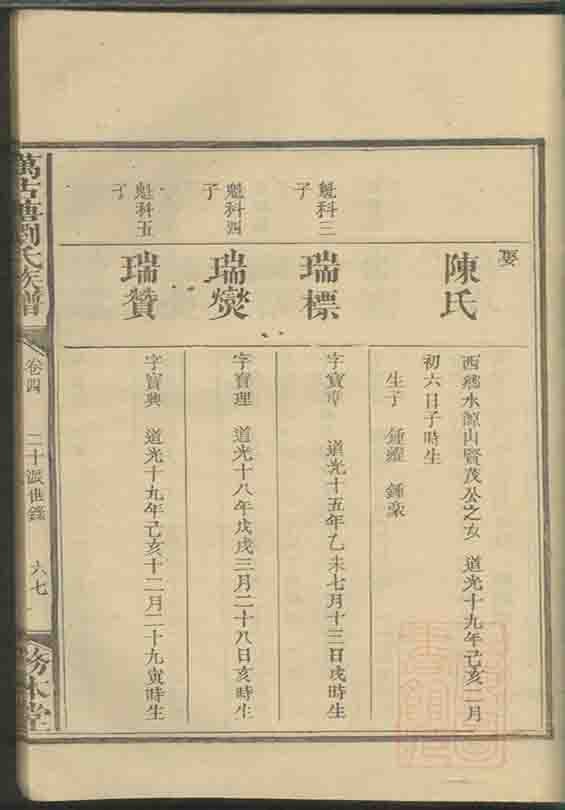 娶
陳氏
西鄉水源山賢茂公之女 道光十九年己亥二月
初六日子時生
生子 鍾躍 鍾豪
魁科三
子
瑞標
字寶章 道光十五年乙未七月十三日戌時生
魁科四
子
瑞爕
字寶理 道光十八年戊戌三月二十八日亥時生
魁科五
子
瑞贊
字寶興 道光十九年己亥十二月二十九寅時生
萬古塘劉氏族譜
卷四
二十派世錄
六七
敦本堂